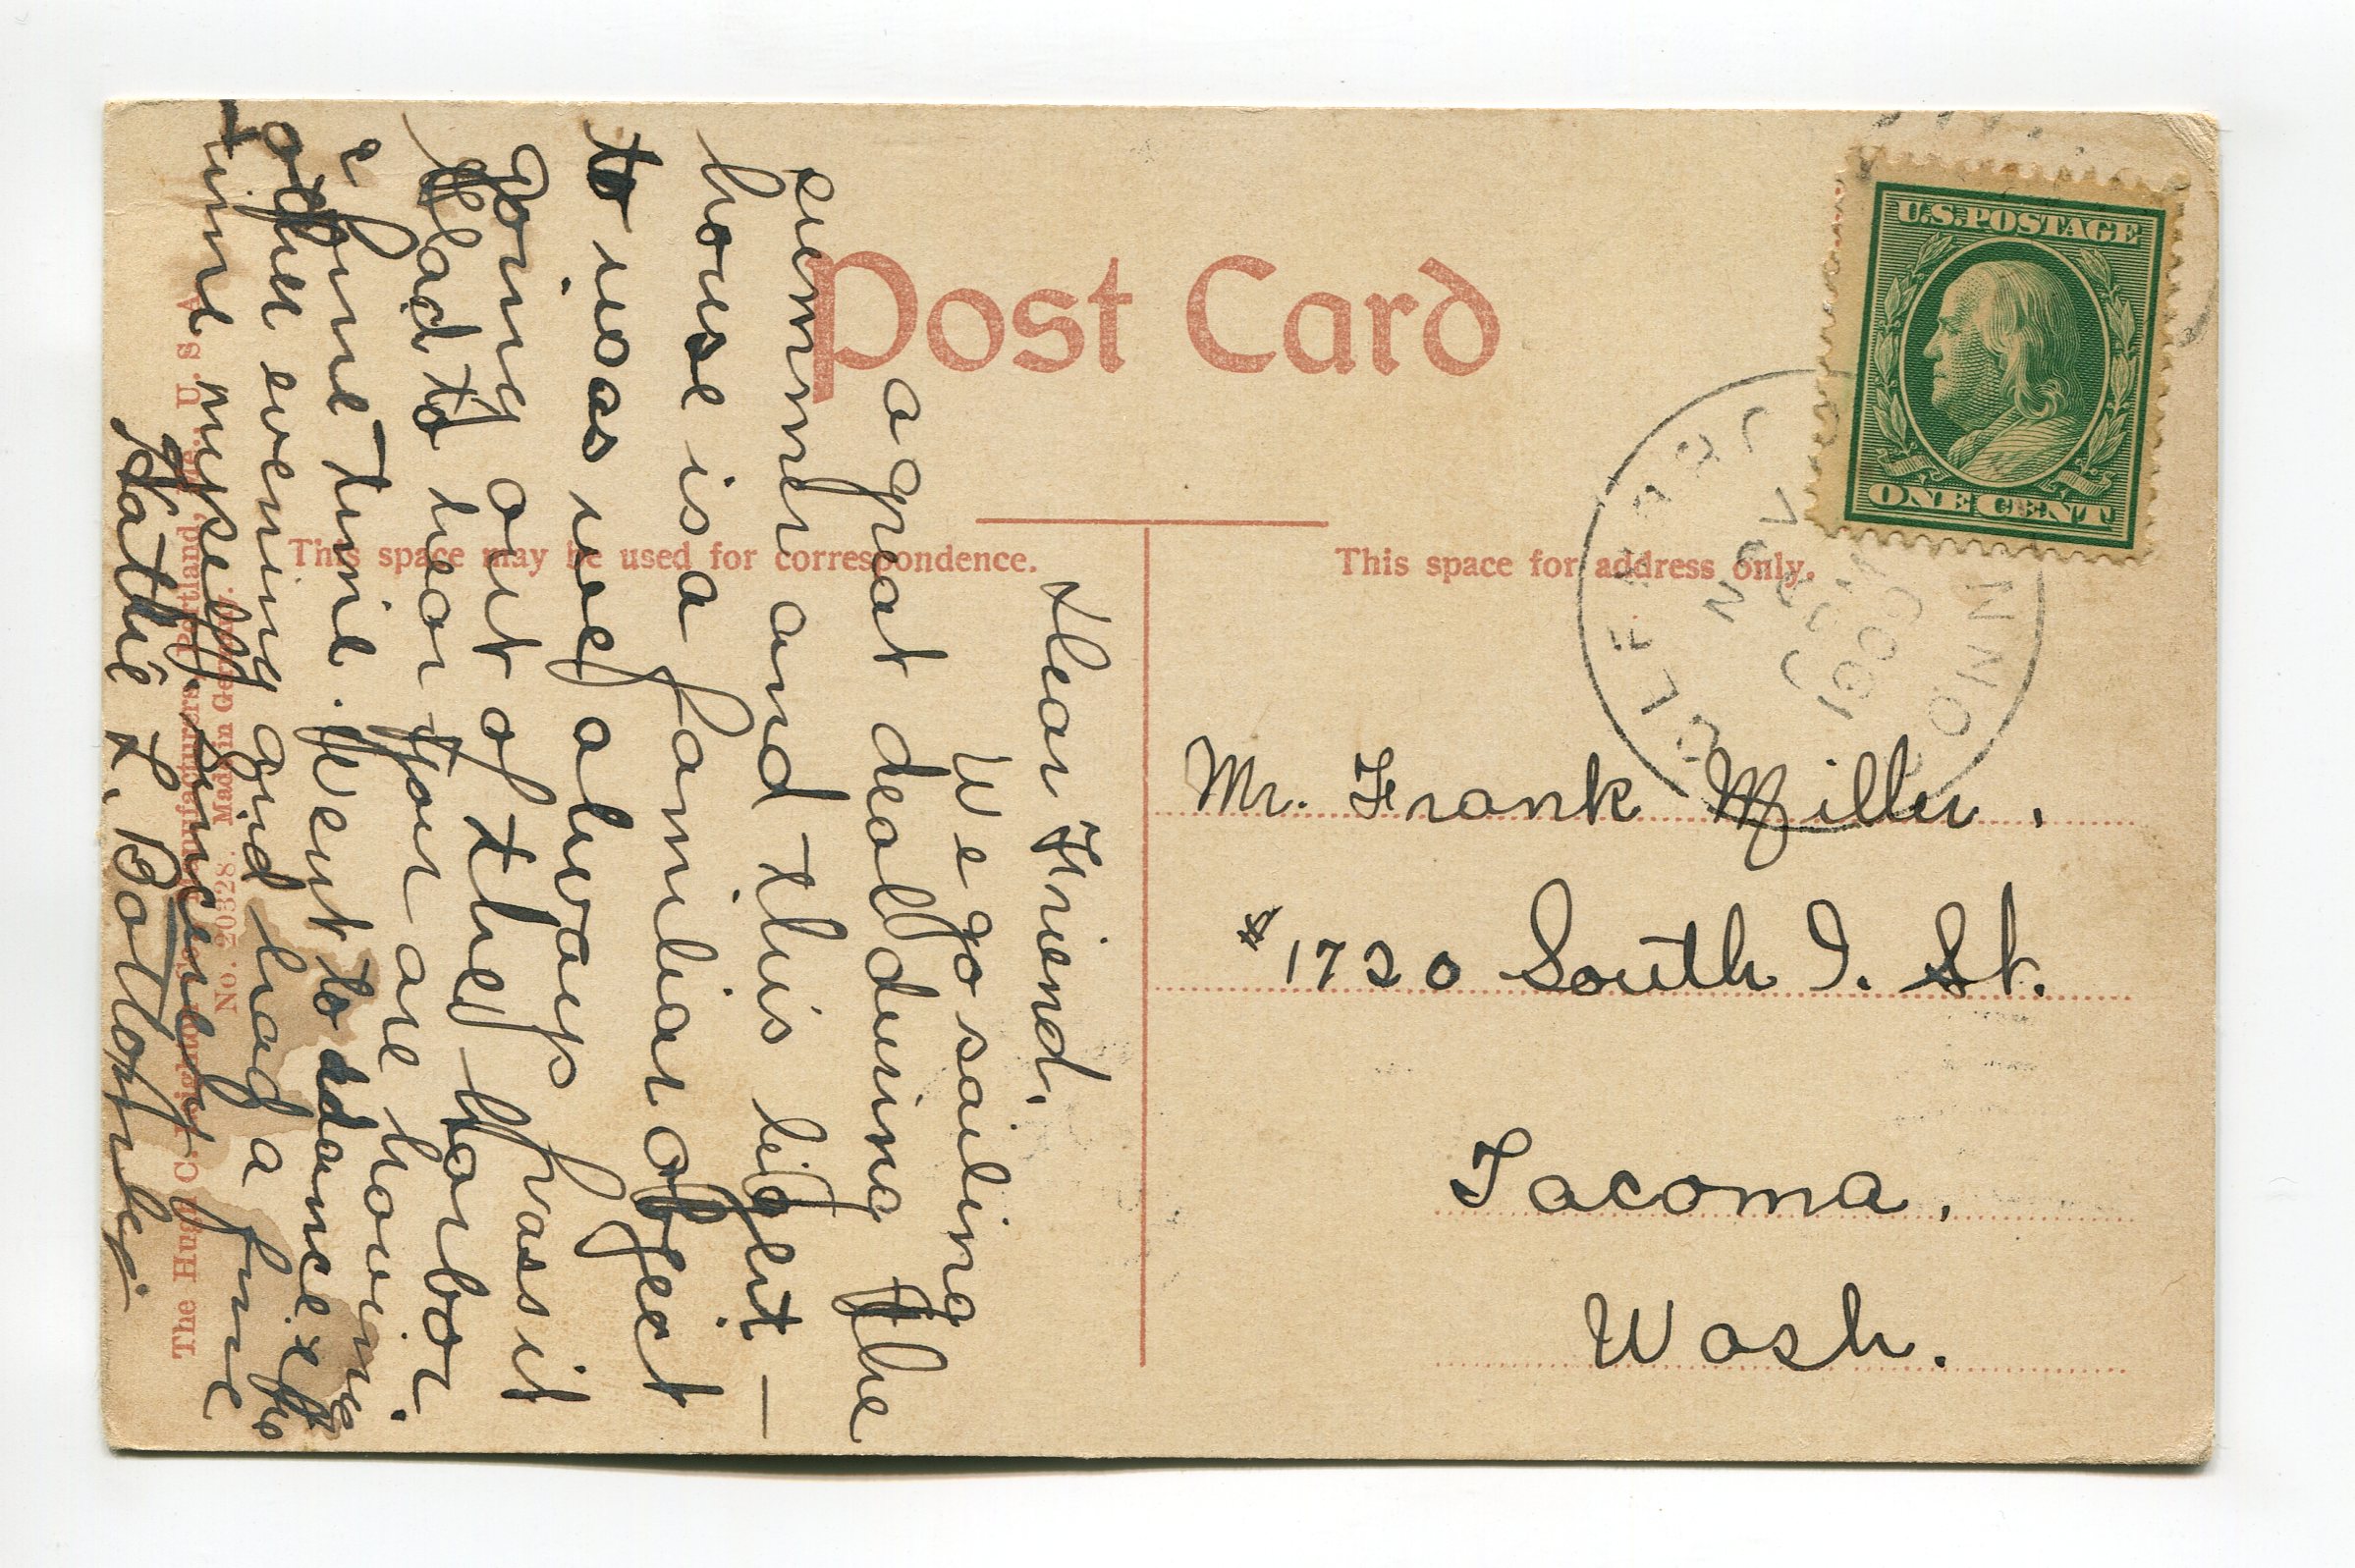 Post Card
U.S. POSTAGE
ONE CENT
NOV
1909
CONN
This space may be used for correspondence.
This space for address only.
Dear Friend,
We go sailing
a great deal during the
summer and this light –
house is a familiar object
to us as we always pass it
going out of the harbor.
Glad to hear you are having
a fine time. Went to a dance the
other evening and had a fine
time myself. Sincerely
Hattie L. Bottomley
Mr. Frank Miller.
1720 South I. St.
Tacoma.
Wash.
The Hugh C. Leighton Co., Manufacturers, Portland, Me., U. S. A.
No. 20328. Made in Germany.